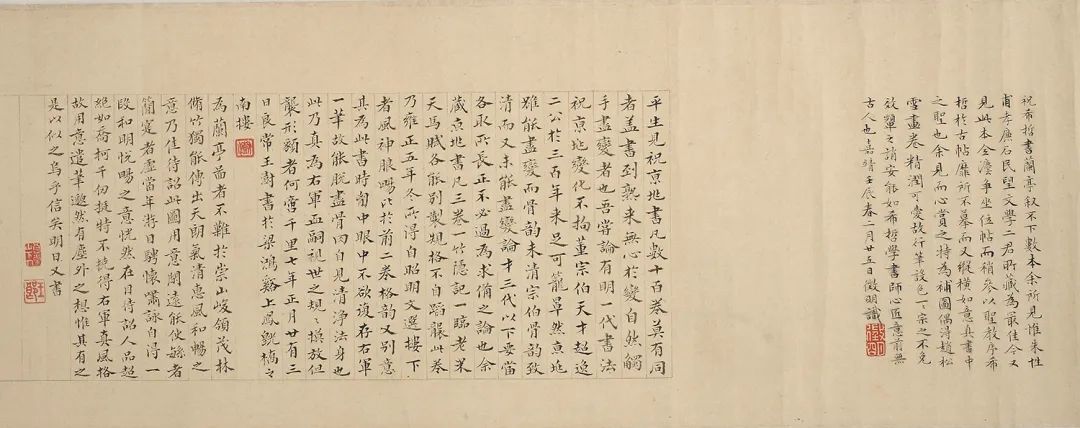 祝希哲書蘭亭叙不下數本余所見惟朱性
甫孝廉石民望文學二君所藏為最佳今又
見此本全濡爭坐位帖而稍參以聖教序希
哲於古帖靡所不摹而又縱橫如意真書中
之聖也余見而心賞之特為補圖偶得趙松
雪畫卷精潤可愛故行筆設色一一宗之不免
效顰之誚安能如希哲學書師心匠意前無
古人也嘉靖壬辰春二月廿五日徵明識
平生見祝京兆書凡數十百卷莫有同
者蓋書到熟來無心於變自然觸
手盡變者也吾嘗論有明一代書法
祝京兆變化不拘董宗伯天才超逸
二公於三百年來足可籠罩然京兆
雖能盡變而骨韵未清宗伯骨韵致
清而又未能盡變論十三代以下要當
各取所長正不必過為求備之論也余
藏京兆書凡三卷一竹隱記一臨老米
天馬賦各能別製規格不自蹈襲此卷
乃雍正五年冬所得自昭明文選樓下
者風神朗暢以比於前二卷格韵又別意
其為此書時胷中眼中不欲復存右軍
一筆故能脫盡骨肉自見清淨法身也
此乃真為右軍血嗣視世之規規摸放但
襲形貌者何啻千里七年正月廿有三
日良常王澍書於梁鴻谿上鳳
南樓
為蘭亭圖者不難於崇山峻領茂林
脩竹獨能傳出天朗氣清惠風和暢之
意乃佳待詔此圖用意閒遠能使覽者
蕭寥者虛當年游目騁懷嘯詠自得一
段和明恍暢之意恍然在目待詔人品超
絕如喬柯千仞挺特不撓得右軍真風格
故用意遣筆邈然有塵外之想惟其有之
是以似之烏乎信矣明日又書